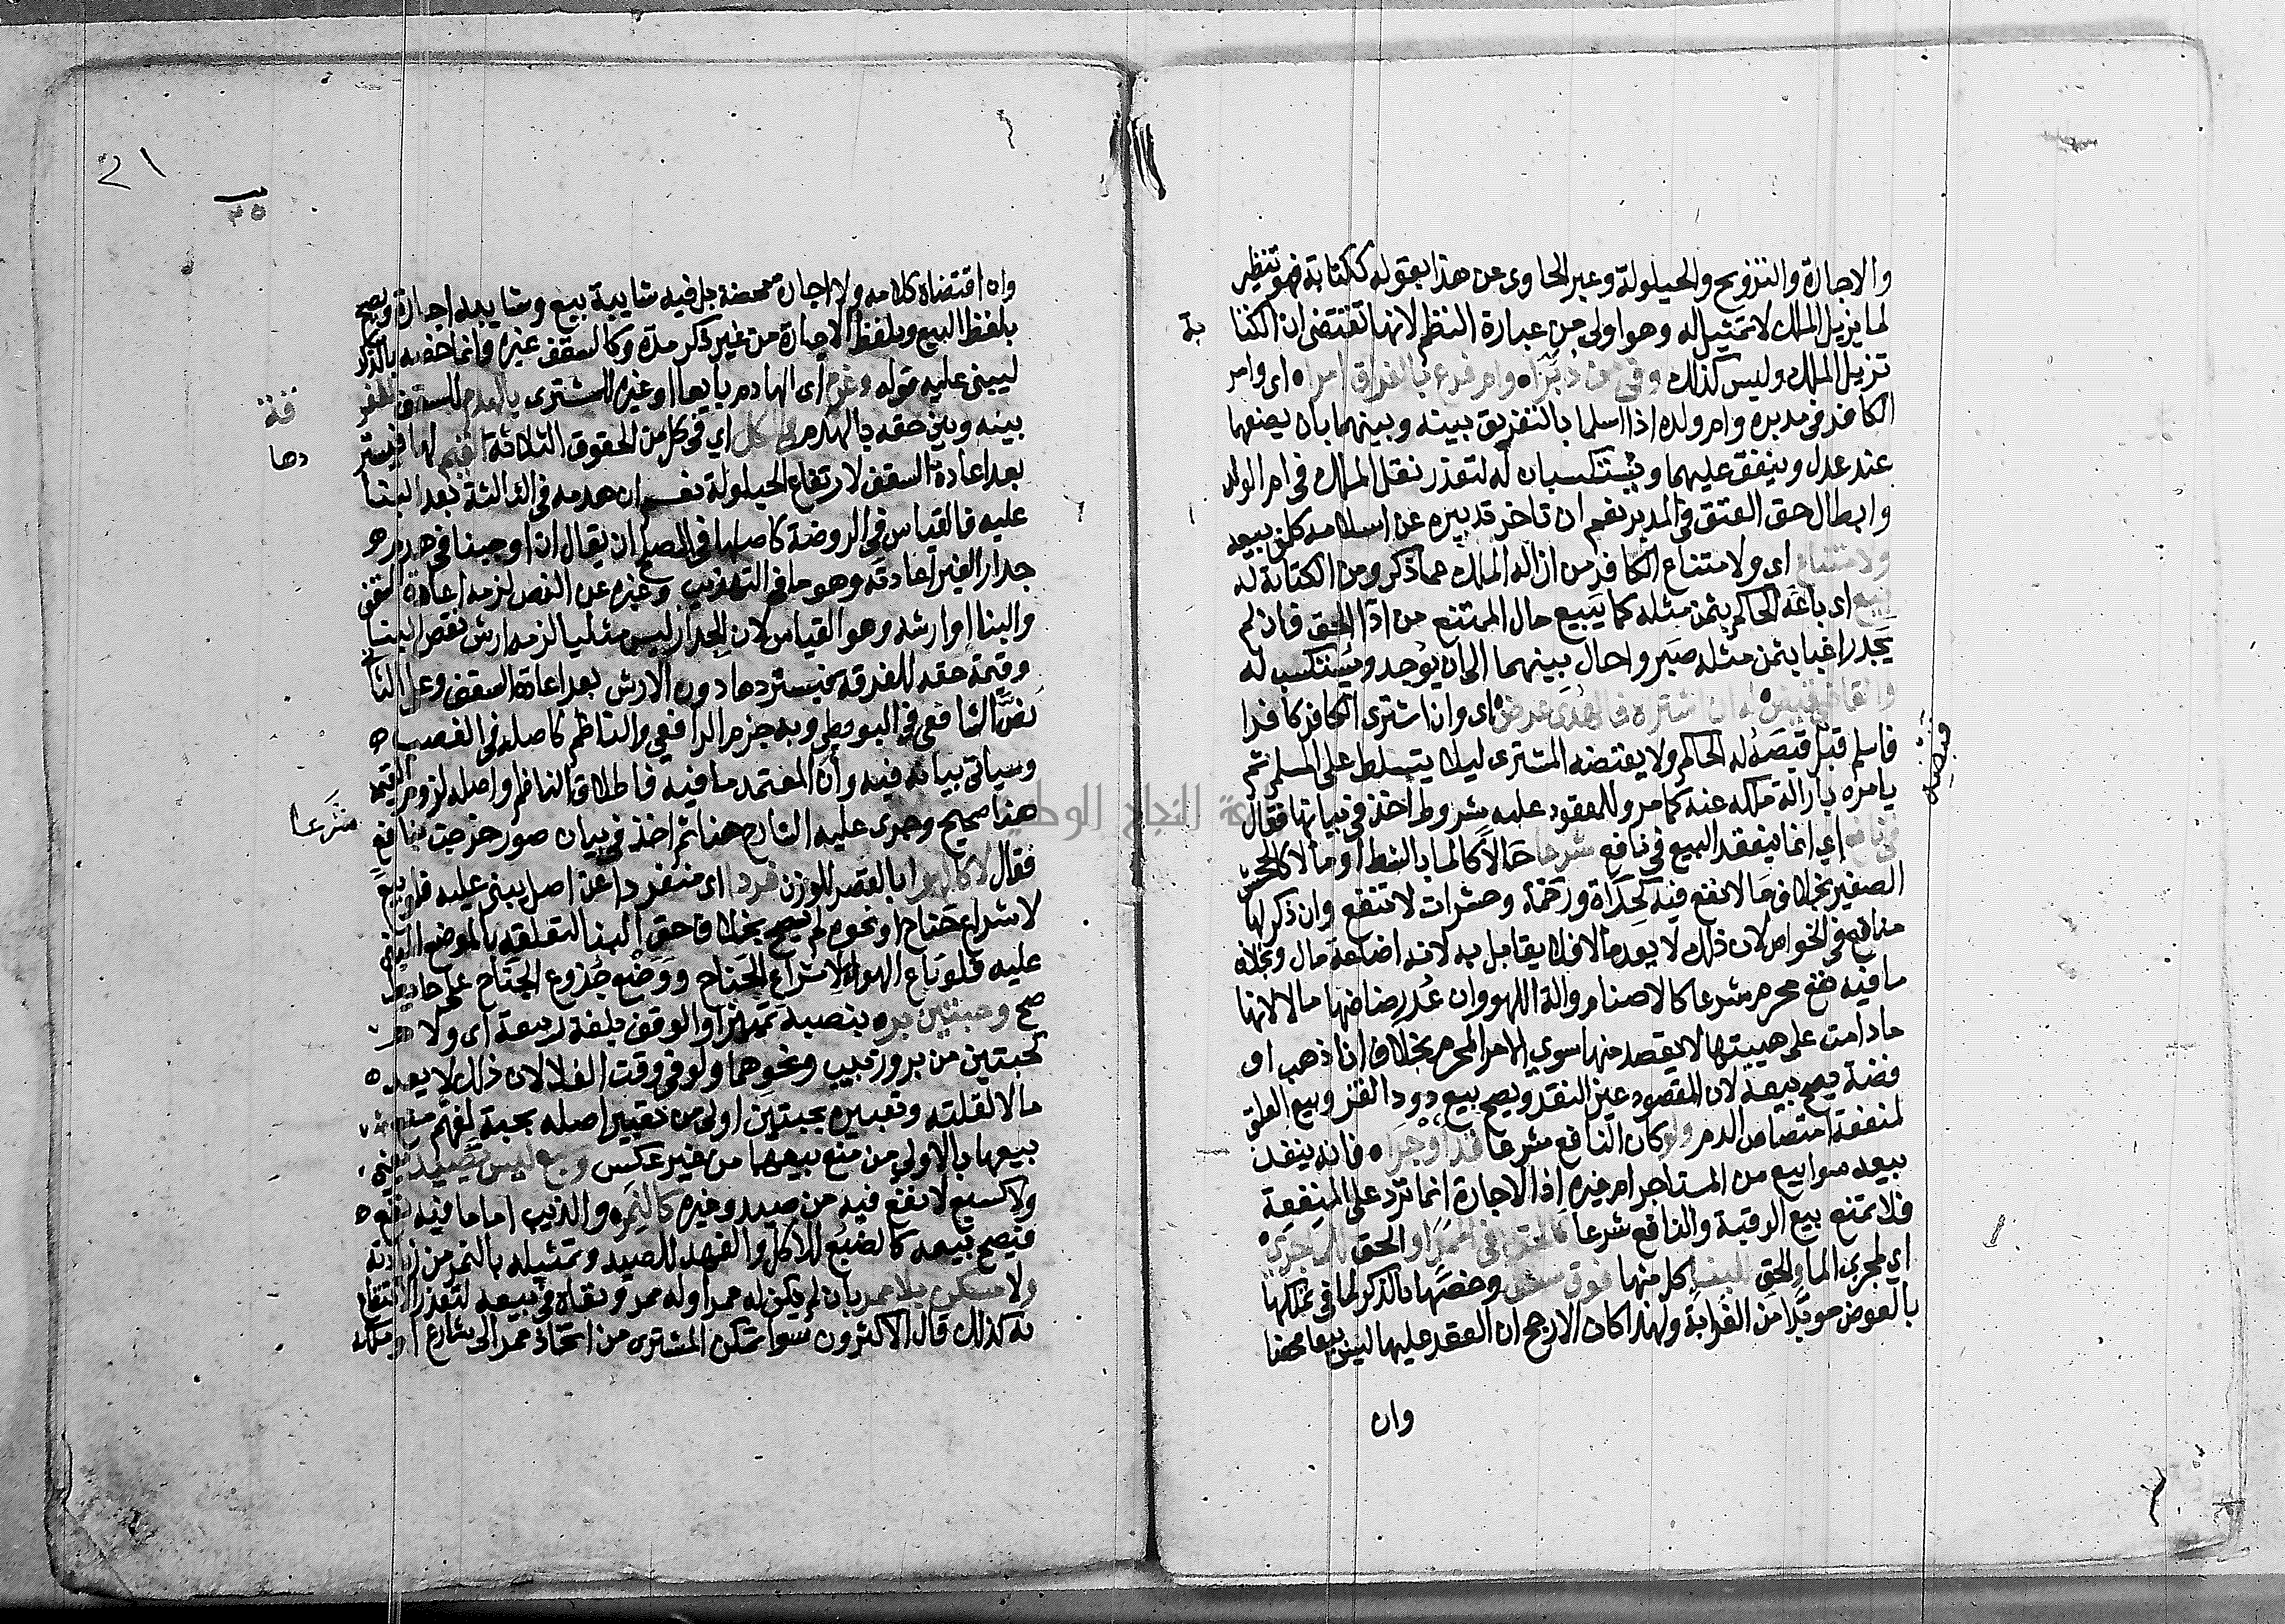 والاجارة والتزويج والحيلولة وعبر الحاوى عن هذا بقوله ككتابة فهو تنظير
لما يزيل الملك لا تمثيل له وهو اولى من عبارة النظم لانها تقتضى ان الكتا
بة
تزيل الملك وليس كذلك وفى من دبراه وام فرع بالفراق امراه اى وامر
الكافر فى مدبره وام ولده اذا اسلما بالتفريق بينه وبينهما بان يضعهما
عند عدل وينفق عليهما ويستكسبان له لتعذر نقل الملك فى ام الولد
وابطال حق العتق فى المدبر نعم ان تاخر تدبيره عن اسلامه كلف بيعه
ولامتناع اى ولامتناع الكافر من ازالة الملك عما ذكر ومن الكتابة له
بيع اى باعه الحاكم بثمن مثله كما يبيع مال الممتنع من ادا الحق فان لم
يجد راغبا بثمن مثله صبر واحال بينهما الى ان يوجد ويستكسب له
اى وان اشترى الكافر كافرا
فاسلم قبل قبضه له الحاكم ولا يقبضه المشترى ليلا يتسلط على المسلم ثم
يقبضه
يامره بازالة ملكه عنه كما مر وللمعقود عليه شروط اخذ فى بيانها فقال
فى نافع اى انما ينعقد البيع فى نافع شرعا حالا كالما بالشط او مالا كالجحش
الصغير بخلاف ما لا نفع فيه كحداة ورخمة وحشرات لا تنفع وان ذكر لها
منافع فى الخواص لان ذلك لا يعد مالا فلا يقابل به لانه اضاعة مال وبخلاف
ما فيه نفع محرم شرعا كالاصنام والة اللهو وان عد رضاضها مالا لانها
ما دامت على هيئتها لا يقصد منها سوى الامر المحرم بخلاف انا ذهب او
فضة يصح بيعه لان المقصود عين النقد ويصح بيع دود القز وبيع العلق
لمنفعة امتصاص الدم ولو كان النافع شرعا قد اوجراه فانه ينفذ
بيعه سوا بيع من المستاجر ام غيره اذ الاجارة انما ترد على المنفعة
فلا تمنع بيع الرقبة والنافع شرعا كالحق فى الممر او الحق
اى لمجرى الما والحق للبنا كل منها فوق سقف وخصها بالذكر لما فى تملكها
بالعوض موبدا من الغرابة ولهذا كان الارجح ان العقد عليها ليس بيعا محضا
وان
21
وان اقتضاه كلامه ولا اجارة محضة بل فيه شايبة بيع وشايبة اجارة ويصح
بلفظ البيع وبلفظ الاجارة من غير ذكر مدة وكالسقف غيره وانما خصه بالذكر
ليبنى عليه قوله وغرم اى الهادم بايعا او غيره للمشترى بالهدم للسقف للفر
قة
بينه وبين حقه بالهدم فى كل اى فى كل من الحقوق الثلاثة القيم لها فيستر
دها
بعد اعادة السقف لارتفاع الحيلولة نعم ان هدمه فى الثالثة بعد البنا
عليه فالقياس فى الروضة كاصلها فى الصلح ان يقال ان اوجبنا فى هدم
جدار الغير اعادته وهو ما فى التهذيب وغيره عن النص لزمه اعادة السقف
والبنا او ارشه وهو القياس لان الجدار ليس مثليا لزمه ارش نقص البنا
وقيمة حقه للفرقة فيستردها دون الارش بعد اعادة السقف وعلى الثا
نص الشافعى فى البويطى وبه جزم الرافعى والناظم كاصله فى الغصب
وسياتى بيانه فيه وان المعتمد ما فيه فاطلاق الناظم واصله لزوم القيمة
هنا صحيح وجرى عليه الشارح هنا ثم اخذ فى بيان صور خرجت بنافع
شرعا
فقال لا كالهوا بالقصر للوزن فردا اى منفردا عن اصل يبنى عليه فلو بيع
لاشراع جناح او نحوه لم يصح بخلاف حق البنا لتعلقه بالموضع المبنى
عليه فلو باع الهوا لاشراع الجناح ووضع جذوع الجناح على حايط
صح وحبتين بره بنصبه تمييزا والوقف بلغة ربيعة اى ولا
كحبتين من بر وزبيب ونحوهما ولو فى وقت الغلا لان ذلك لا يعد
مالا لقلته وتعبيره بحبتين اولى من تعبير اصله بحبة لفهم منع
بيعها بالاولى من منع بيعهما من غير عكس وسبع ليس
ولا كسبع لا نفع فيه من صيد وغيره كالنمر والذيب اما ما فيه نفع
فيصح بيعه كالضبع للاكل والفهد للصيد وتمثيله بالنمر من زيادته
ولا مسكن بلا ممر بان لم يكن له ممر او له ممر ونفاه فى بيعه لتعذر الانتفاع
به كذلك قال الاكثرون سوا تمكن المشترى من اتخاذ ممر الى شارع او ملكه